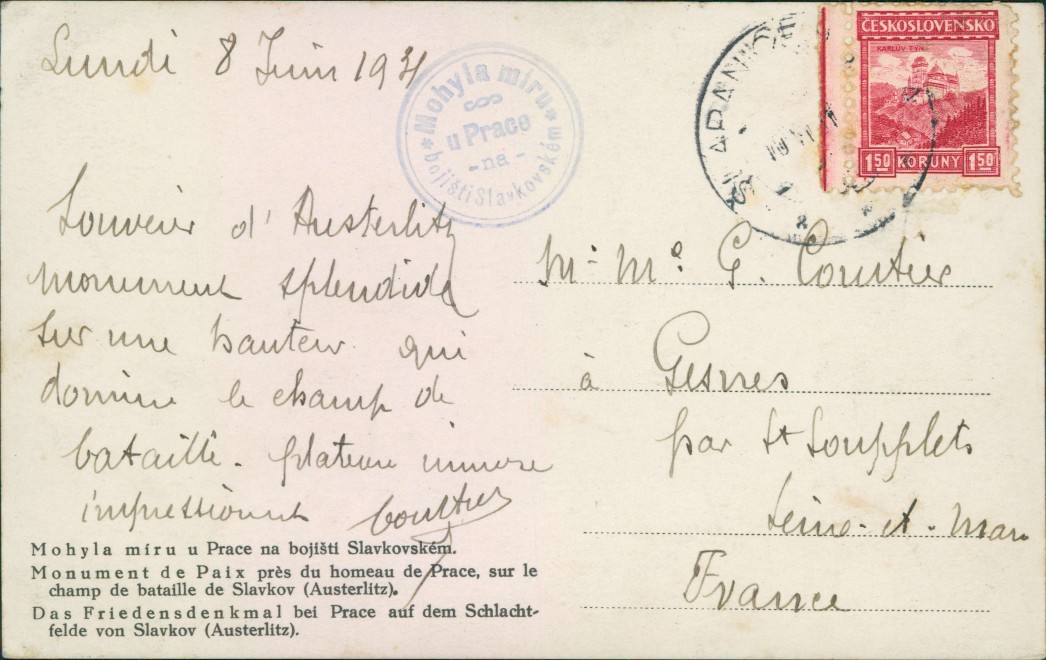 Lundi 8 Juin 1931
Mohyla míru
u Prace
- na -
bojišti Slavkovském
ČESKOSLOVENSKO
KARLŮV TÝN
1.50 KORUNY 1.50
Souvenir d'Austerlitz
monument splendide
sur une hauteur qui
domine le champ de
bataille. plateau immense
impressionnant
M. Me G.
à Gesvres
par St Soupplets
Seine-et-Marne
France
Mohyla míru u Prace na bojišti Slavkovském.
Monument de Paix près du homeau de Prace, sur le
champ de bataille de Slavkov (Austerlitz).
Das Friedensdenkmal bei Prace auf dem Schlacht-
felde von Slavkov (Austerlitz).